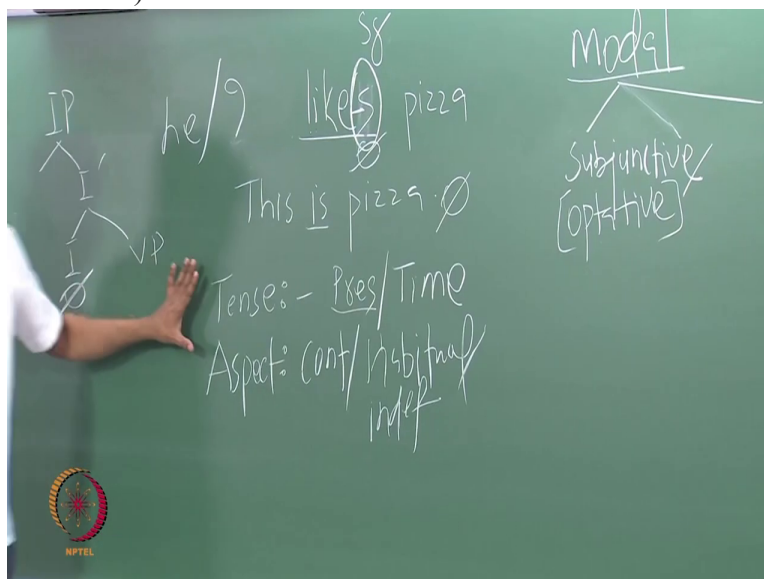 sg
he/I likes pizza
Ø
This is pizza. Ø
Tense:- Pres/Time
Aspect: Cont/Habitual/
indef
IP
I'
I VP
Ø
Modal
Subjunctive/
[optative]
NPTEL